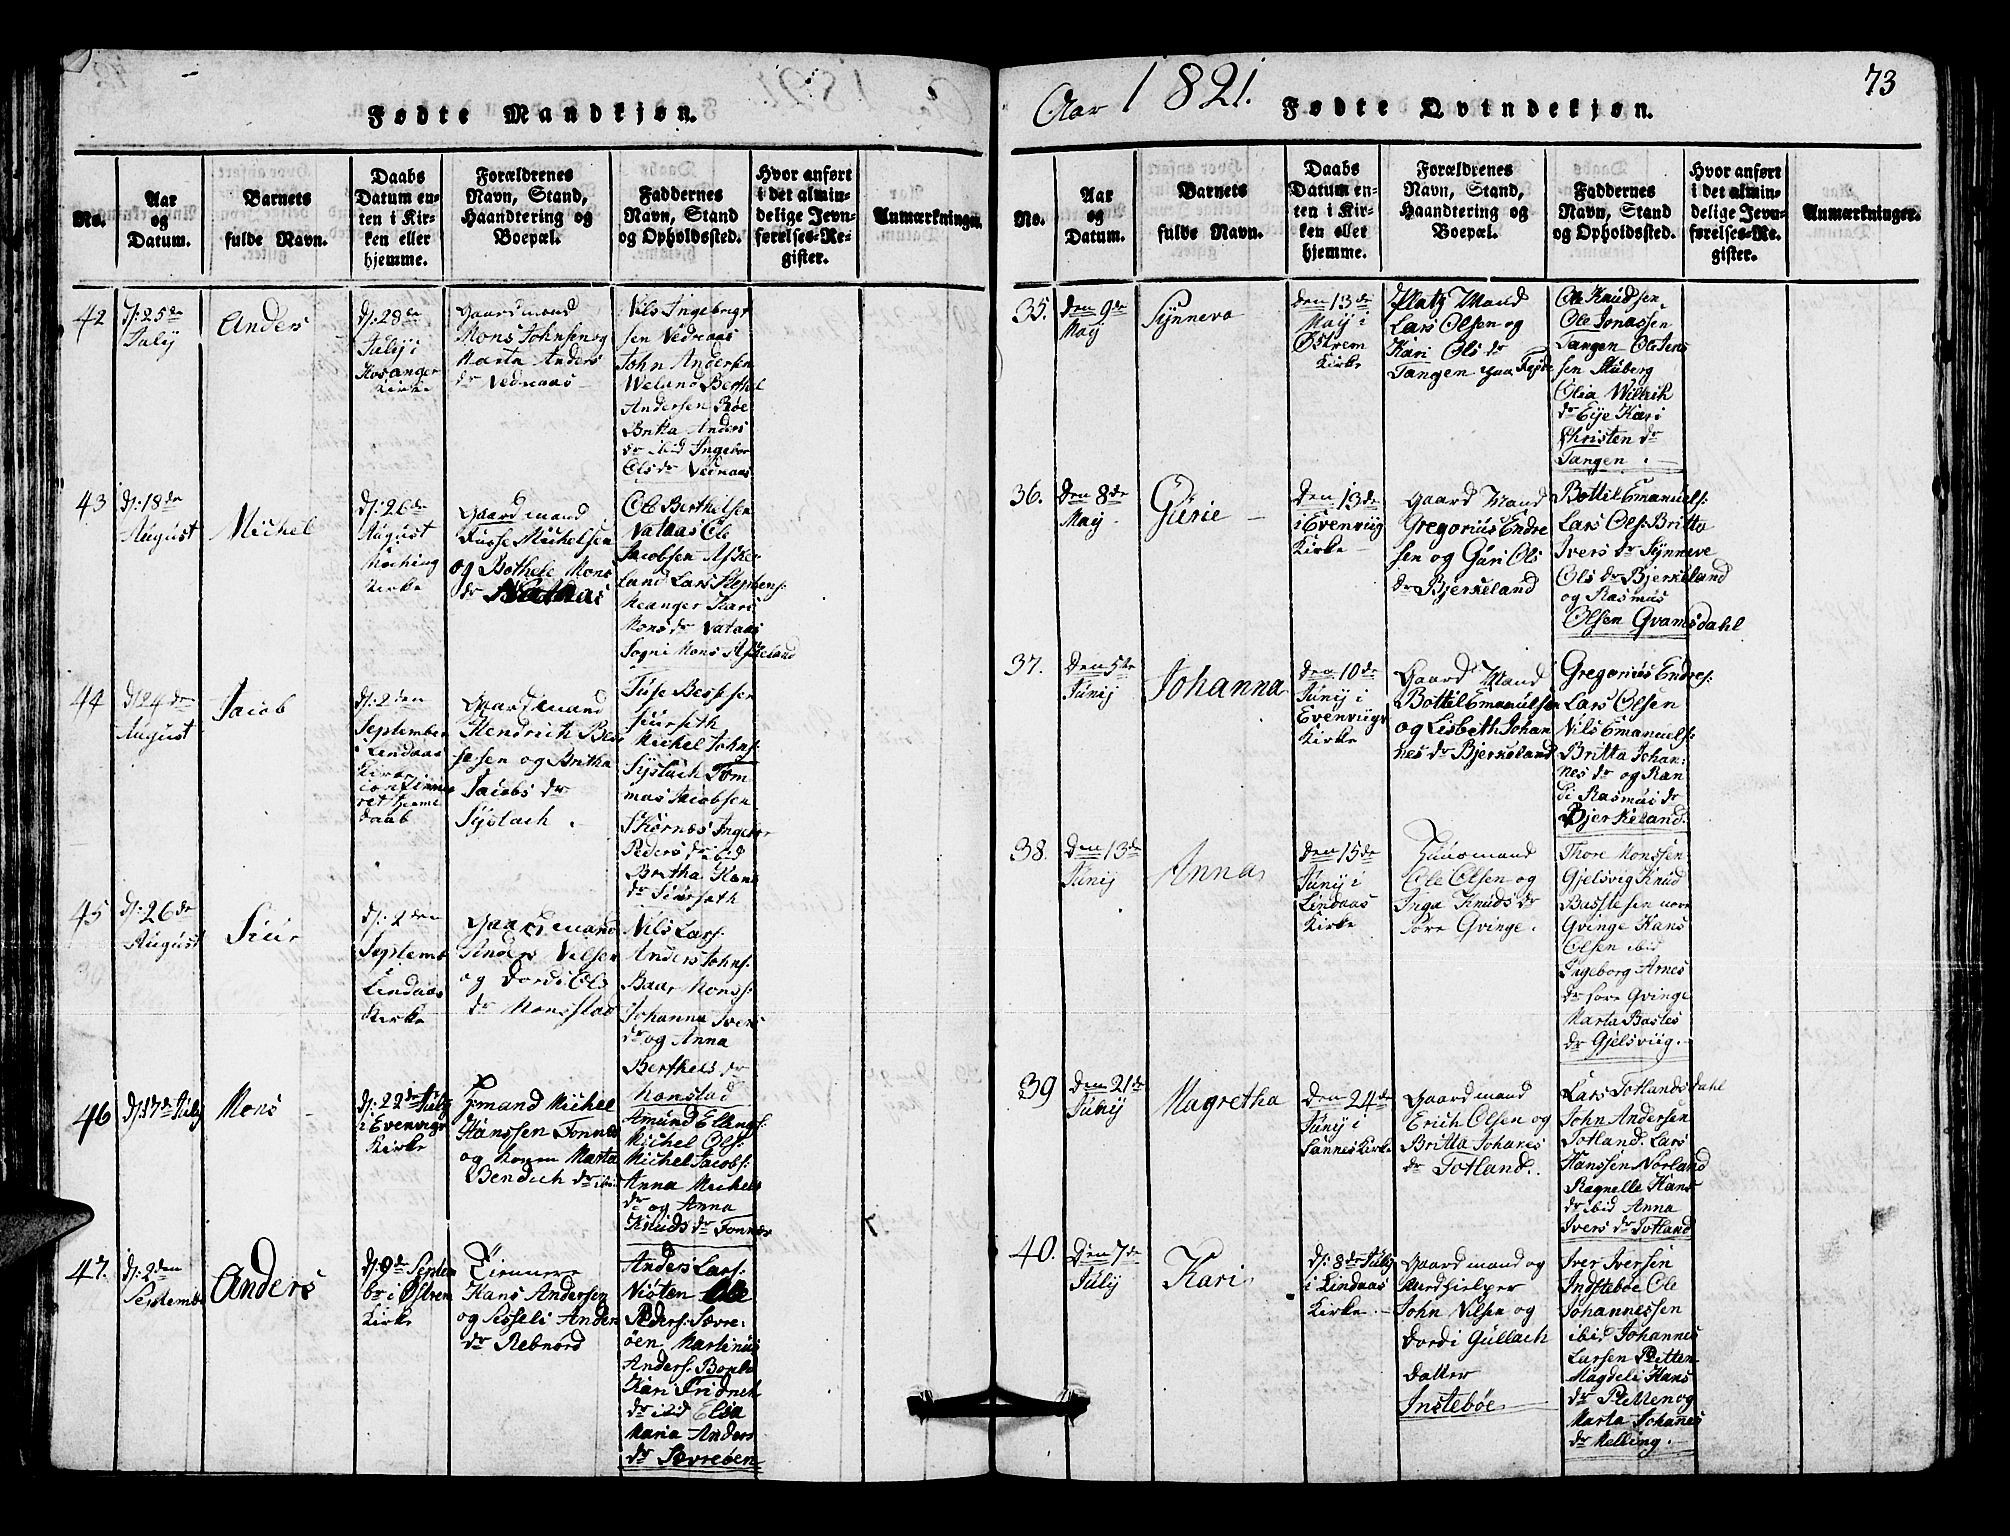 Fødte Mandkjøn.
No.
Aar
og
Datum.
Barnets
fulde Navn.
Daabs
Datum en-
ten i Kir-
ken eller
hjemme.
Forældrenes
Navn, Stand,
Haandtering og
Boepæl.
Faddernes
Navn, Stand
og Opholdssted.
Hvor anført
i det almin-
delige Jevn-
førelses-Re-
gister.
Anmærkninger.
42
d: 25de
July
Anders
d: 28de
July i
Kirke
Gaardmand
Mons Johnsen og
Marta Anders
dr Vednaas
Nils Ingebrigt
sen Vednaas
John Andersen
Weland Berthel
Andersen Bøe
Britta Anders
dr ibid Ingebor
Ols dr Vednaas
43
d: 18de
August
Michel
d: 26de
August
Kirke
Gaardmand
Tusse Michelsen
og Bothele Mons
dr Nataas
Ole Berthelsen
Vataas Ole
Jacobsen Aske
land Lars Stephens:
Meanger Kari
Mons dr Vataas
Sogni Mons Askeland
44
d: 24de
August
Jacob
d: 2den
September
i Lindaas
Kirke
confirme
ret hjeme
daab
Gaardmand
Hendrich Bes
sesen og Britha
Jacobs dr
Syslach
Michel Johns:
Syslach Tom
mas Jacobsen
Skornes Ingebor
Peders dr ibid
Britha Hans
45
d: 26de
August
Siur
d: 2den
Septemb
i
Lindaas
Kirke
Gaardmand
Anders Nilsen
og Dordi Ols
dr Monsstad
Nils Lars:
Anders Johns:
Baar Mons:
Johanna Ivers
dr og Anna
Berthels dr
Monstad
46
d: 17de July
Mons
d: 22de July
i Evenvigs
Kirke
Michel
Hanssen Tonnes
og Konen Marta
Bendich dr ibid
Amund Ellings:
Michel Ols:
Michel Jacobs:
Anna Michels
dr og Anna
Knuds dr Tonnes
47.
d: 2den
Septembr
Anders
d: 9de Septem
br i Østren
Kirke
Hans Andersen
og Sisseli Anders
dr Rebnord
Anders Lars:
Nisten Ole
Peders: Sævre:
øen Martinus
Anders:
Kari Fridrich
dr ibid Elsa
Maria Anders
dr Sævreøen
Aar 1821.
Fødte Qvindekjøn.
73
No.
Aar
og
Datum.
Barnets
fulde Navn.
Daabs
Datum en-
ten i Kir-
ken eller
hjemme.
Forældrenes
Navn, Stand,
Haandtering og
Boepæl.
Faddernes
Navn, Stand
og Opholdssted.
Hvor anført
i det almin-
delige Jevn-
førelses-Re-
gister.
Anmærkninger.
35.
Den 9de
May
Synneva
Den 13de
May i
Østrem
Kirke
Platz Mand
Lars Olsen og
Kari Ols dr
Tangen paa
Ole Knudsen
Ole Jonassen
Tangen Ole Jens
sen Stuberg
Olia Willich
dr Eye Kari
Christen dr
Tangen.
36.
Den 8de
May
Gurie
Den 13de
i Evenviig
Kirke
Gaard Mand
Gregorius Endre
sen og Guri Ols
dr Bjerkeland
Bottil Emanuels:
Lars Ols: Britta
Ivers dr Synneve
Ols dr Bjerkeland
og Rasmus
Olsen Qvamsdahl
37.
Den 5te
Juny
Johanna
Den 10de
Juny i
Evenviigs
Kirke
Gaard Mand
Bottil Emanuelsen
og Lisbeth Johan
nes dr Bjerkeland
Gregorius Endres:
Lars Olsen
Nils Emanuels:
Britta Johan:
nes dr og Ran
di Rasmus dr
Bjerkeland.
38.
Den 13de
Juny
Anna
Den 15de
Juny i
Lindaas
Kirke
Huusmand
Ole Olsen og
Inga Knuds dr
Søre Qvinge.
Thore Monssen
Gjelsvig Knud
Bastesen nore
Qvinge Hans
Olsen ibid
Ingeborg Arnes
dr søre Qvinge
Marta Bastes
dr Gjelsviig.
39
Den 21de
Juny
Magretha
Den 24de
Juny i
Sannes Kirke
Gaardmand
Erich Olsen og
Britta Johanes
dr Totland.
Lars Totlandsdahl
John Andersen
Totland. Lars
Hanssen Norland
Ragnelle Hans
dr ibid Anna
Ivers dr Totland
40.
Den 7de
July
Kari
d: 8de July
i Lindaas
Kirke
Gaardmand og
Medhjelper
John Nilsen og
Dordi Gullach
datter
Instebøe
Iver Iversen
Indstebøe Ole
Johannessen
ibid Johannes
Larsen Pletten
Magdeli Hans
dr Pletten og
Marta Johanes
dr Melling.